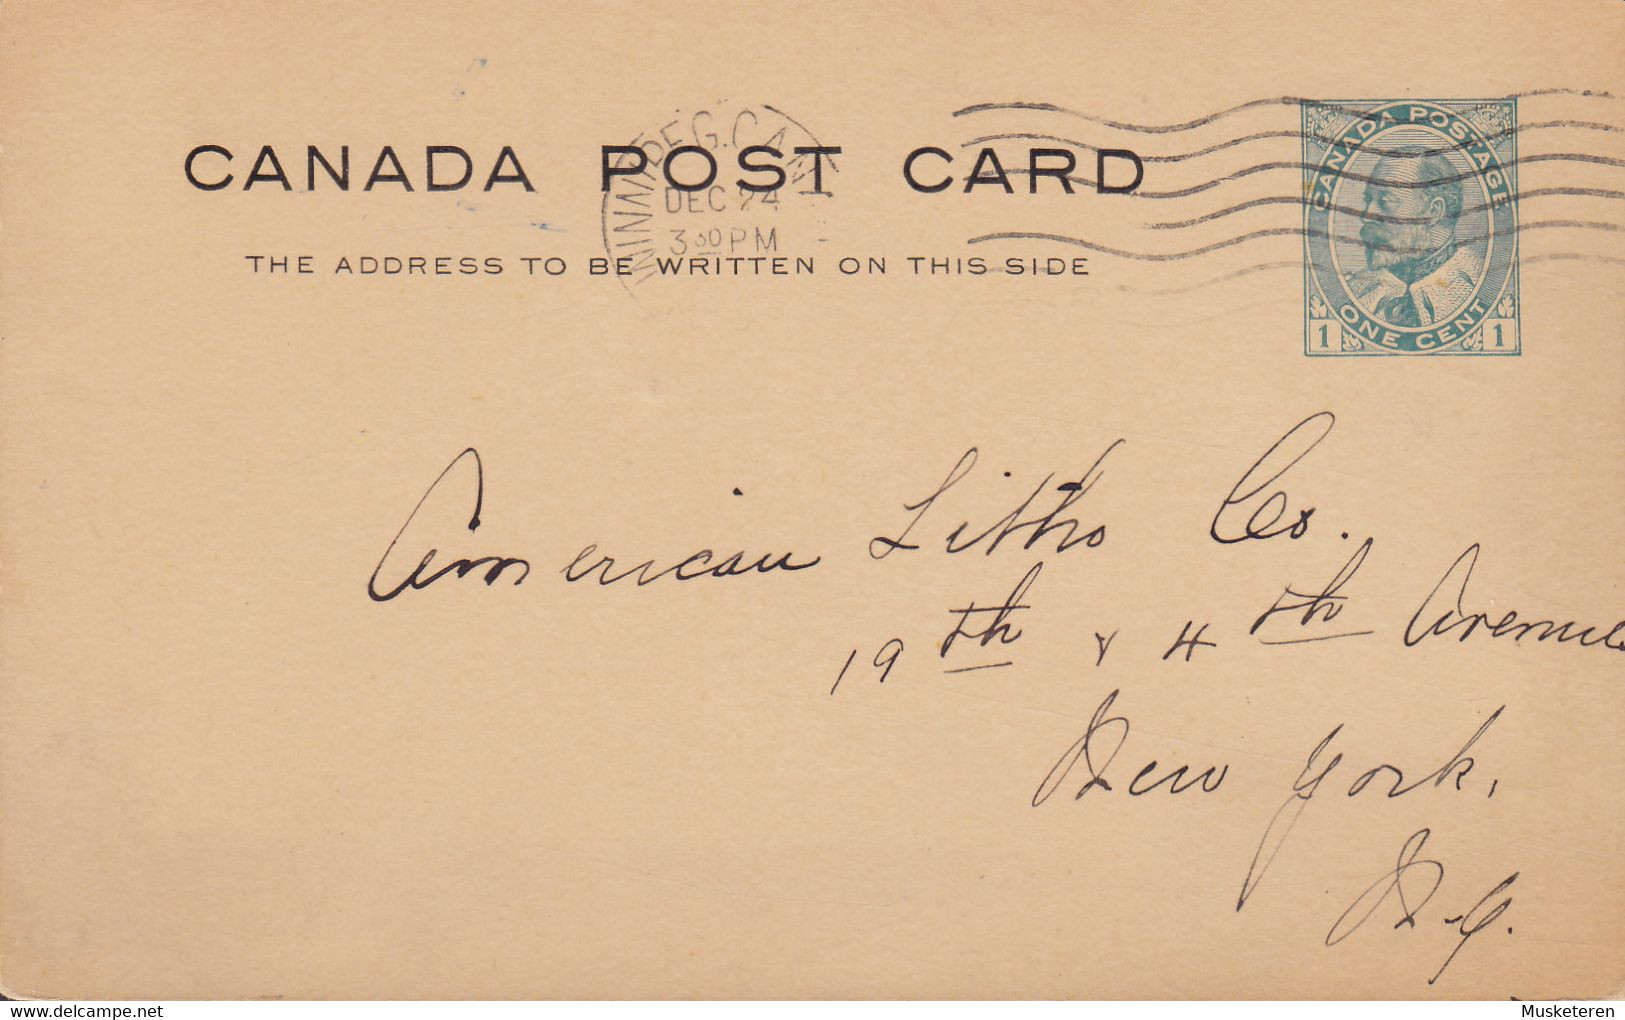 CANADA POST CARD
THE ADDRESS TO BE WRITTEN ON THIS SIDE
WINNIPEG. CAN
DEC 24
3 30 PM
CANADA POSTAGE
ONE CENT
1 1
American Litho Co.
19th & 4th Avenue
New York,
N.Y.
delcampe.net
Musketeren